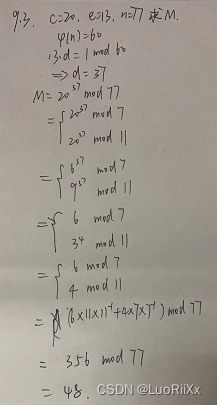 9.3. C=20. e=13. n=77 求M.
φ(n)=60
13·d = 1 mod 60
⇒ d = 37
M = 20^37 mod 77
= { 20^37 mod 7
20^37 mod 11
= { 6^37 mod 7
9^37 mod 11
= { 6 mod 7
3^4 mod 11
= { 6 mod 7
4 mod 11
= (6×11×11^-1+4×7×7^-1) mod 77
= 356 mod 77
= 48.
CSDN @LuoRiiXx